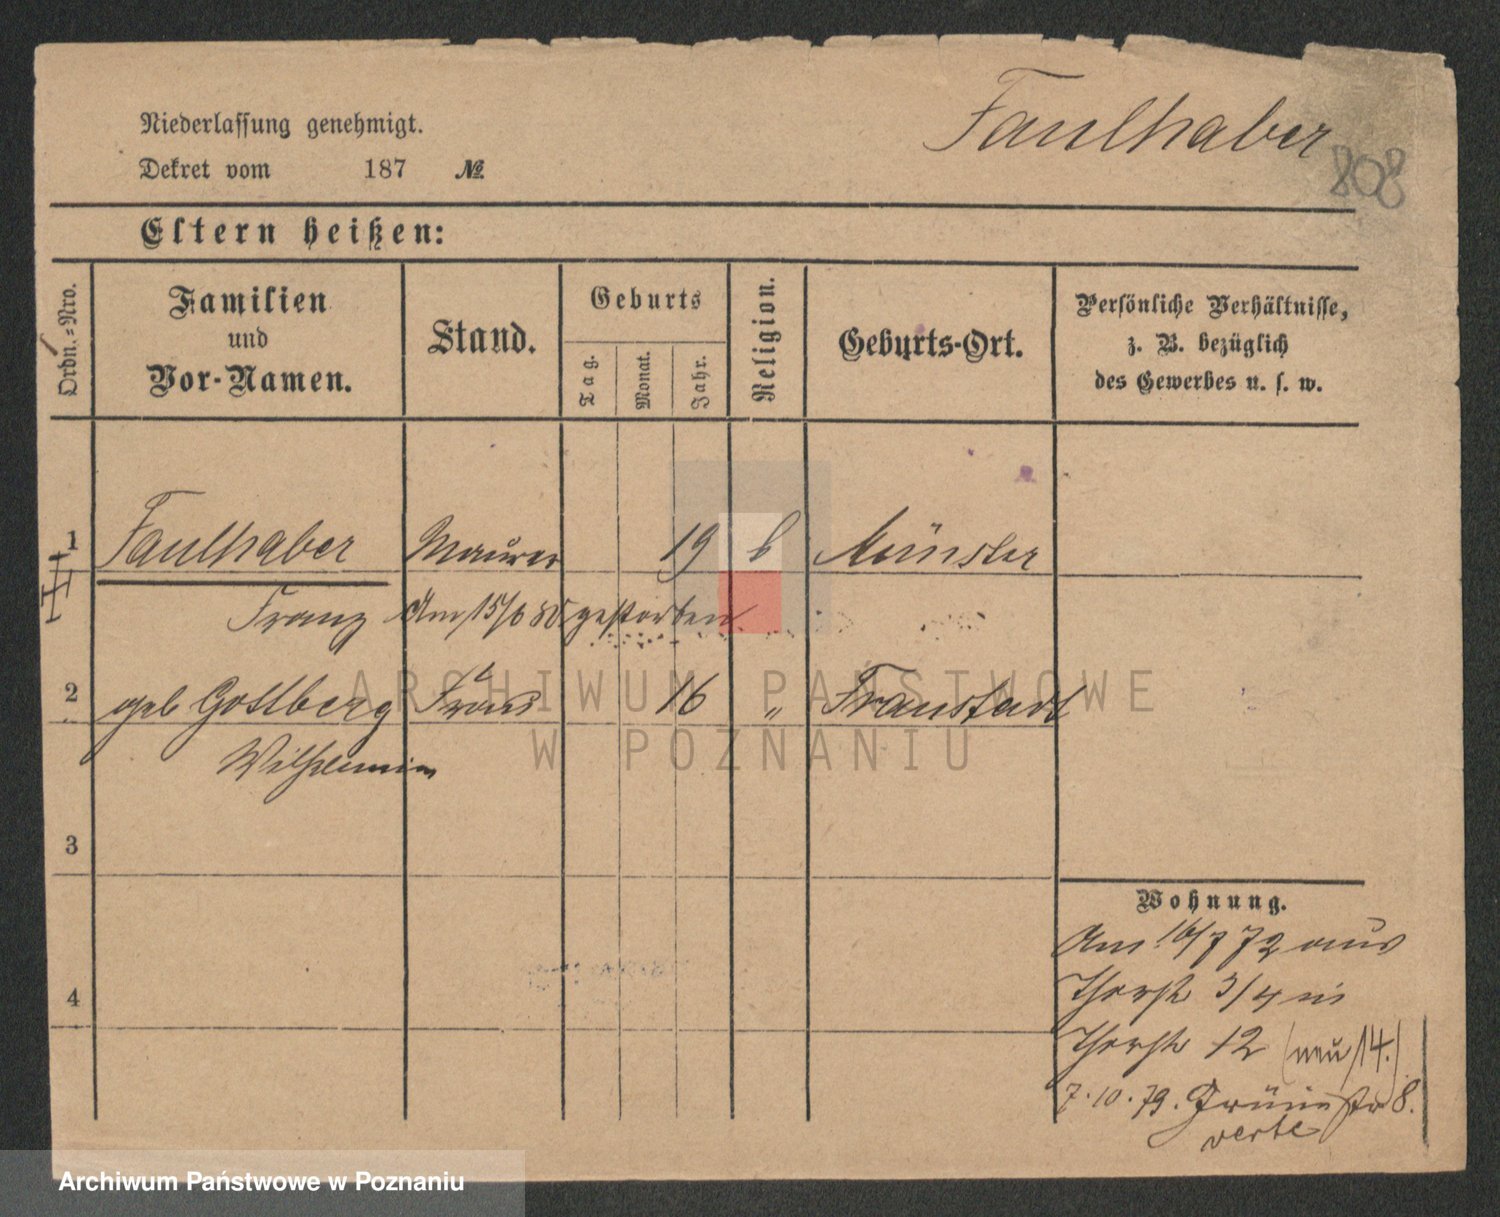 Faulhaber
808
Niederlassung genehmigt.
Dekret vom 187 №
Eltern heißen:
Ordn.-Nro.
Familien
und
Vor-Namen.
Stand.
Geburts
Tag.
Monat.
Jahr.
Religion.
Geburts-Ort.
Persönliche Verhältnisse,
z. B. bezüglich
des Gewerbes u. s. w.
1 Faulhaber Maurer 19 Münster
Franz Am 15/6 80 gestorben
2 geb Gottberg Frau 16 " Fraustadt
Wilhelmin
3
4
Wohnung.
Am 16/7 72 aus
Thorstr 3/4 in
Thorstr 12 (neu 14.)
7.10.79. Grüne Str 8.
verte
ARCHIWUM PAŃSTWOWE
W POZNANIU
Archiwum Państwowe w Poznaniu